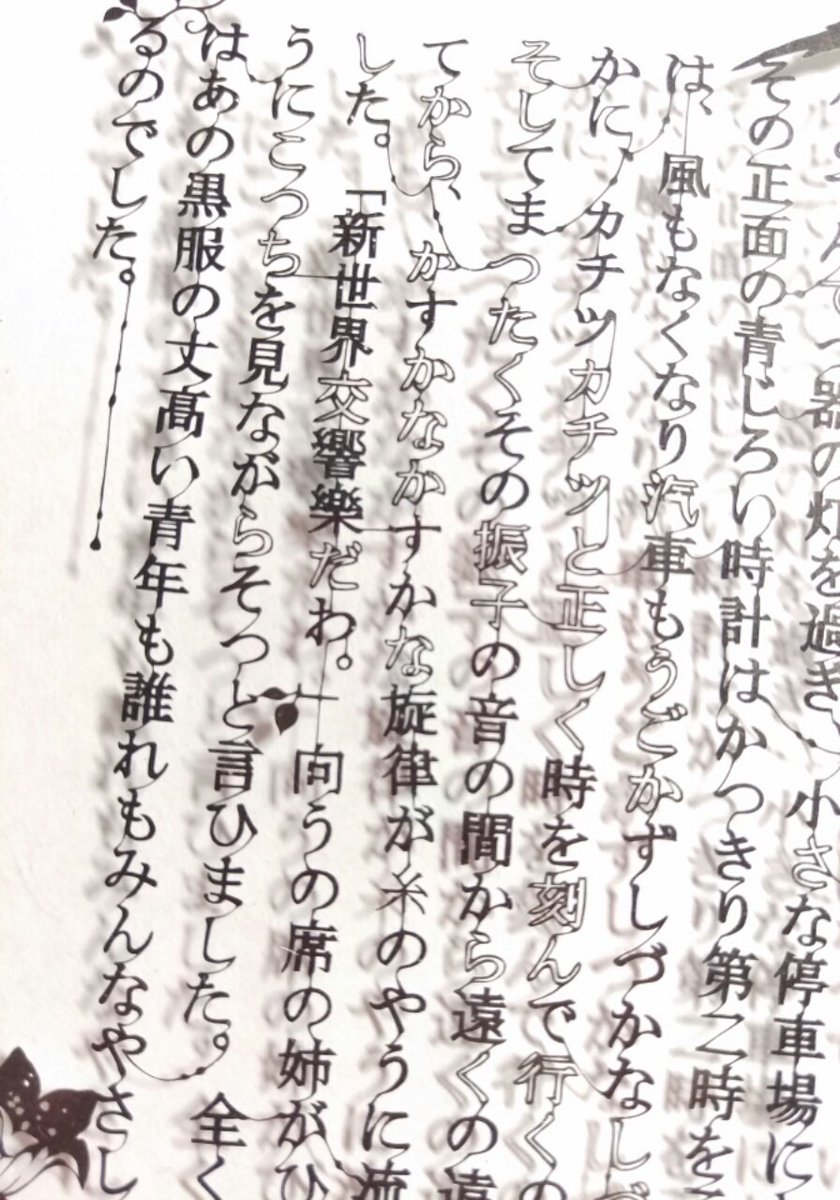 つ器の灯を過ぎ、小さな停車場に
その正面の青じろい時計はかつきり第二時を
は、風もなくなり汽車もうごかずしづかなしづ
かに、カチツカチツと正しく時を刻んで行くの
そしてまつたくその振子の音の間から遠くの遠
てから、かすかなかすかな旋律が糸のやうに流
した。「新世界交響樂だわ。」向うの席の姉がひ
うにこつちを見ながらそつと言ひました。全く
はあの黒服の丈高い青年も誰れもみんなやさし
るのでした。